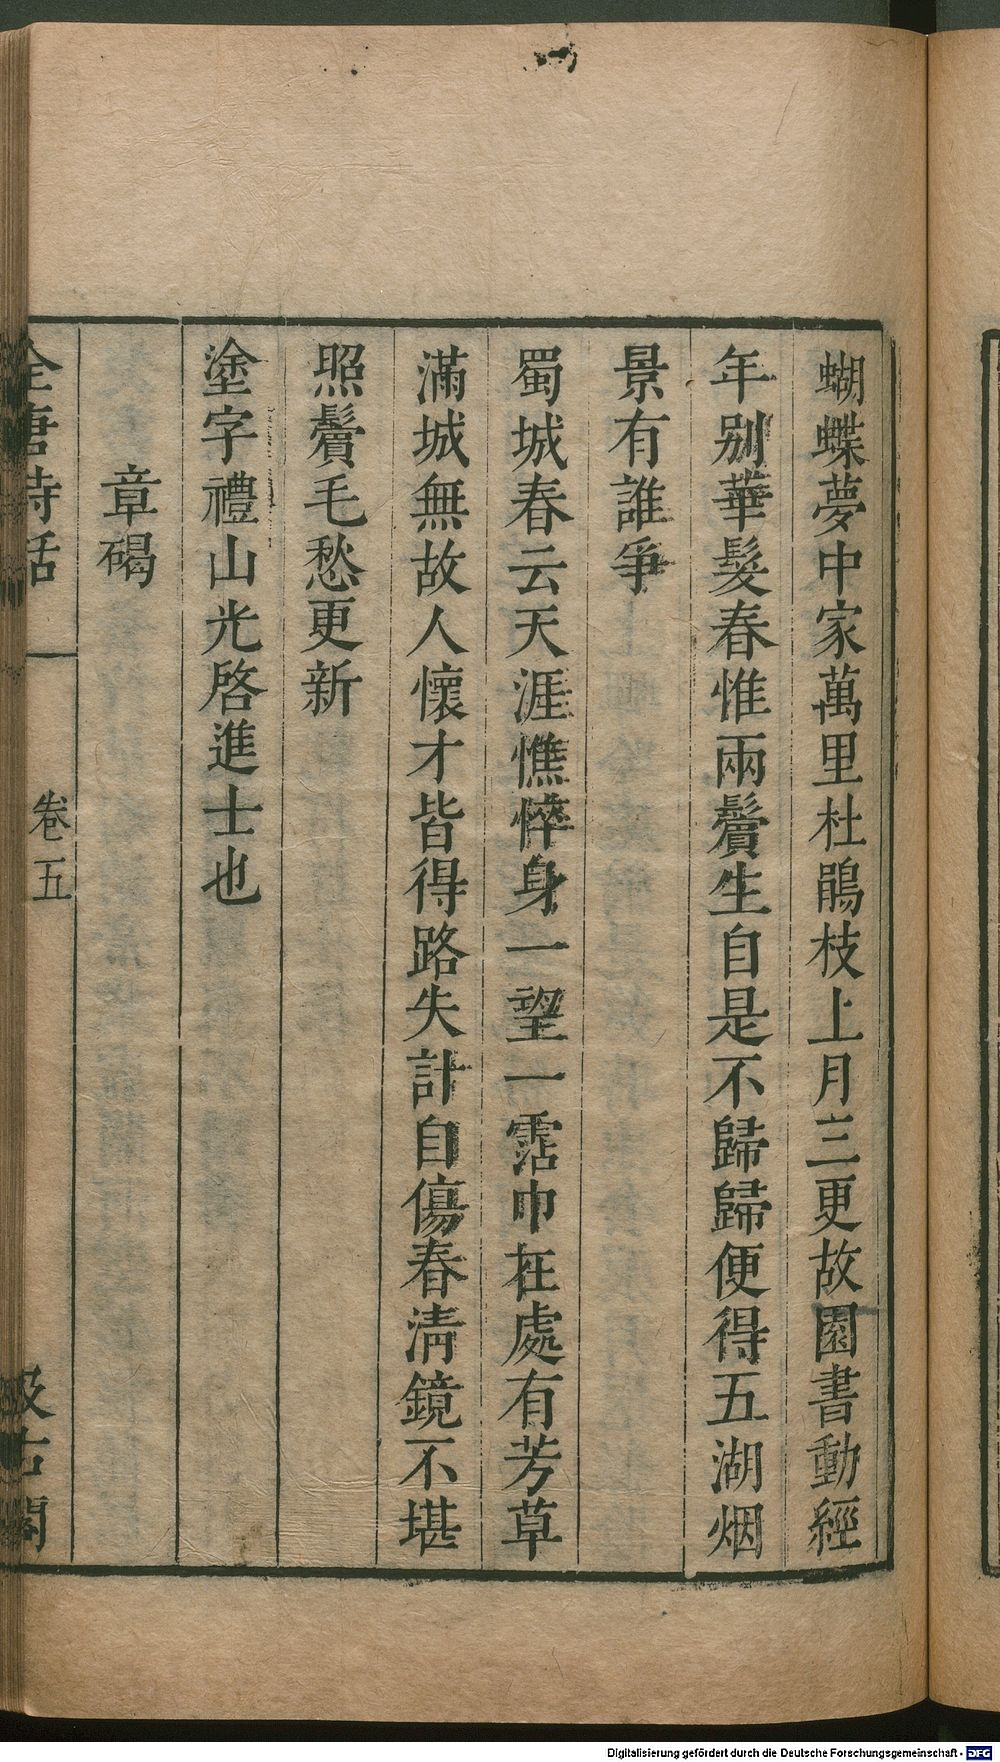 蝴蝶夢中家萬里杜鵑枝上月三更故園書動經
年别華髮春惟兩鬢生自是不歸歸便得五湖烟
景有誰爭
蜀城春云天涯憔悴身一望一霑巾在處有芳草
滿城無故人懷才皆得路失計自傷春淸鏡不堪
照鬢毛愁更新
塗字禮山光啓進士也
章碣
全唐詩話
卷五
汲古閣
Digitalisierung gefördert durch die Deutsche Forschungsgemeinschaft - DFG